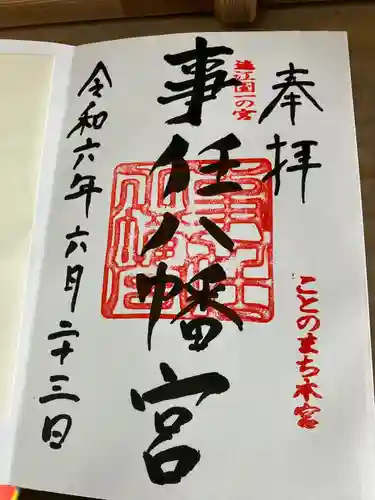 奉拝
遠江国一の宮
事任八幡宮
ことのまち本宮
令和六年六月二十三日